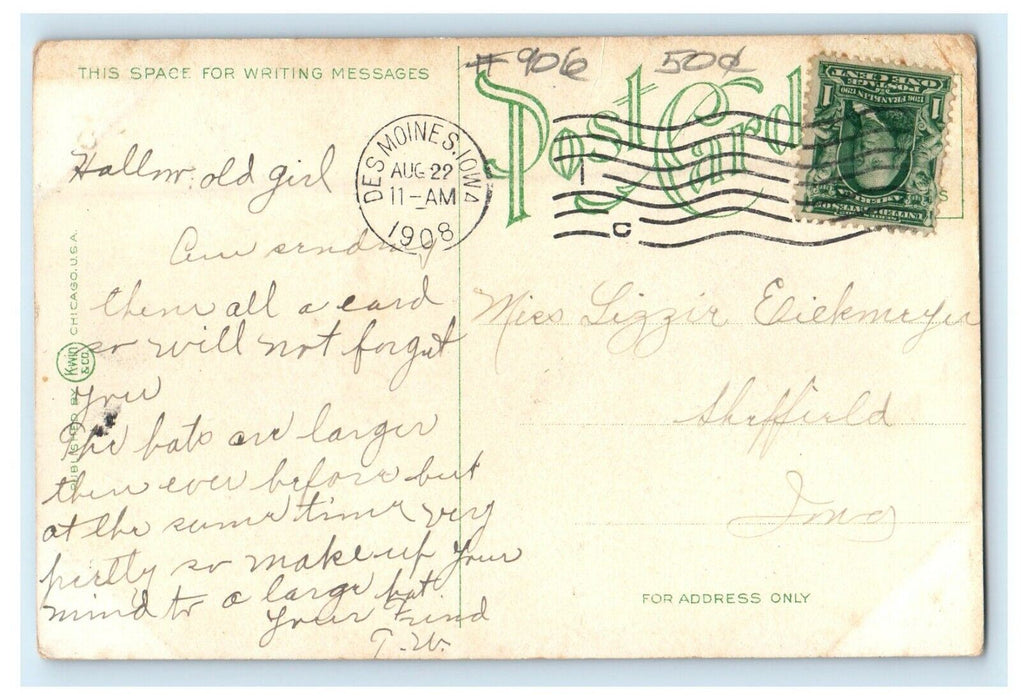 THIS SPACE FOR WRITING MESSAGES
#906 50¢
Post Card
DES MOINES, IOWA
AUG 22
11-AM
1908
ONE CENT
POSTAGE
1706 FRANKLIN 1790
1 1
UNITED STATES OF AMERICA
Hallow old girl
Am sending
them all a card
so will not forget
you
The hats are larger
then ever before but
at the same time very
pretty so make up your
mind to a large hat.
Your Friend
T.W.
PUBLISHED BY KWIN & CO. CHICAGO. U.S.A.
Miss Lizzie Eickmeyer
Sheffield
Iowa
FOR ADDRESS ONLY